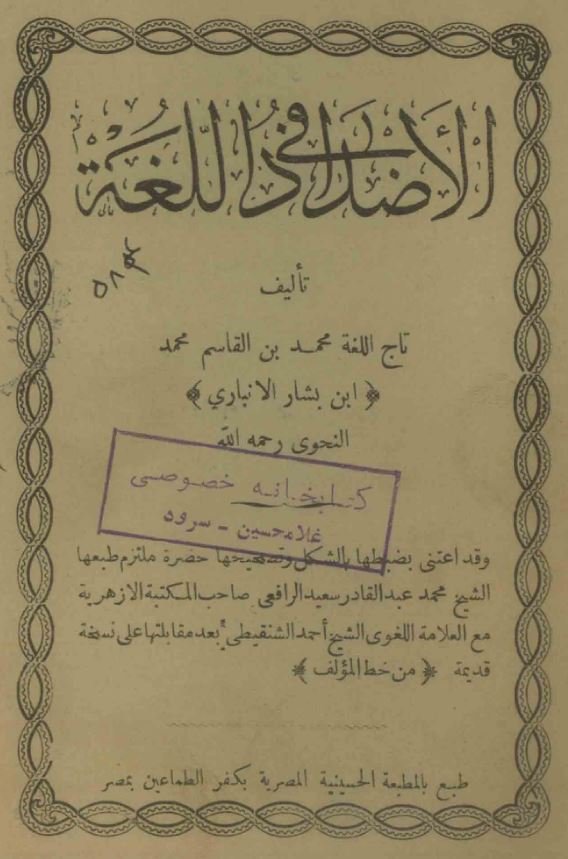 الأضداد في اللغة
تأليف
تاج اللغة محمد بن القاسم محمد
﴿ ابن بشار الانباري ﴾
النحوى رحمه الله
كتابخانه خصوصى
غلامحسين - سرود
وقد اعتنى بضبطها بالشكل وتصحيحها حضرة ملتزم طبعها
الشيخ محمد عبد القادر سعيد الرافعى صاحب المكتبة الازهرية
مع العلامة اللغوى الشيخ أحمد الشنقيطى بعد مقابلتها على نسخة
قديمة ﴿ من خط المؤلف ﴾
طبع بالمطبعة الحسينية المصرية بكفر الطماعين بمصر